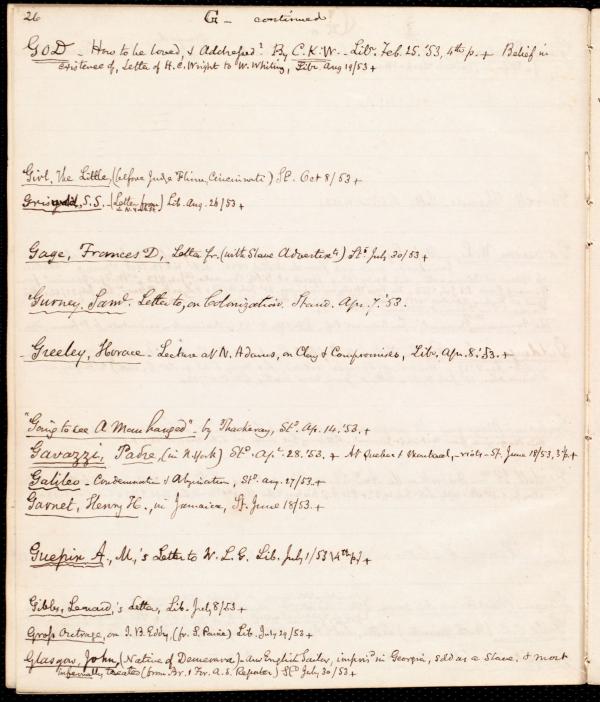 26
G - continued
GOD - How to be loved, & Addressed? By C.K.W. - Libr. Feb. 25. '53, 4th p. + Belief in
existence of, Letter of H.C. Wright to W. Whiting, Libr Aug 19/53 +
Girl, the Little, (before Judge Flinn, Cincinnati) St. Oct 8/53 +
Griswold, S.S. (Letter from) Lib. Aug. 26/53 +
Gage, Frances D, Letter fr. (with Slave Advertists) Std July 30/53 +
Gurney, Saml. Letter to, on Colonization. Stand. Apr. 7, '53.
- Greeley, Horace - Lecture at N. Adams, on Clay & Compromises, Libr. Apr. 8. '53. +
"Going to see A Man hanged" - by Thackeray, Std. Ap. 14. '53. +
Gavazzi, Padre, (in N York) Std. Apl. 28. '53. + At Quebec & Montreal, - riots - St. June 18/53, 3d p. +
Galileo - Condemnation & Abjuration, Std. Aug. 27/53. +
Garnet, Henry H., in Jamaica, St. June 18/53. +
Guepin A., M,'s Letter to W. L. G. Lib. July 1/53 (4th p) +
Gibbs, Leonard,'s Letter, Lib. July 8/53 +
Gross Outrage, on I. B. Eddy, (fr. S. Paine) Lib. July 29/53 +
Glasgow, John, (Native of Demerara) - an English Sailor, impris'd in Georgia, sold as a Slave, & most
infernally treated (from Br. & For. A. S. Reporter) Std July 30/53 +